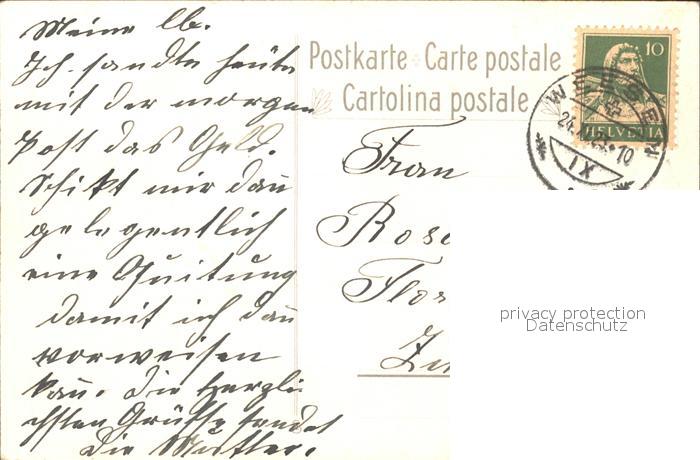 Meine lb.
Ich sandte heute
mit der morgen
post das Geld.
Schikt mir dañ
gelegentlich
eine Quitung
damit ich dañ
vorweisen
kañ. Die herzli-
chsten Grüsse sendet
Die Mutter.
Postkarte Carte postale
Cartolina postale
10
HELVETIA
WEESEN
IX
Frau
Rosa
Flor
Zü
privacy protection
Datenschutz